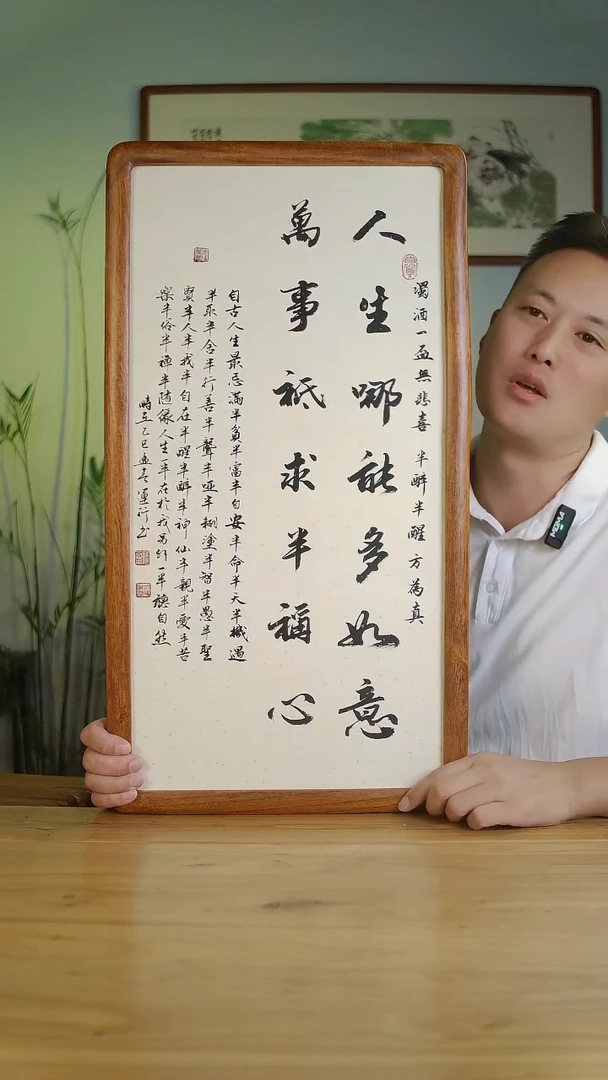 濁酒一盃無悲喜 半醉半醒方為真
人生哪能多如意
萬事祗求半稱心
自古人生最忌滿半貧半富半自安半命半天半機遇
半取半舍半行善半聾半啞半糊塗半智半愚半聖
賢半人半我半自在半醒半醉半神仙半親半愛半苦
樂半俗半禪半隨緣人生一半在於我另外一半聽自然
時在乙巳孟春運行書
MOMA